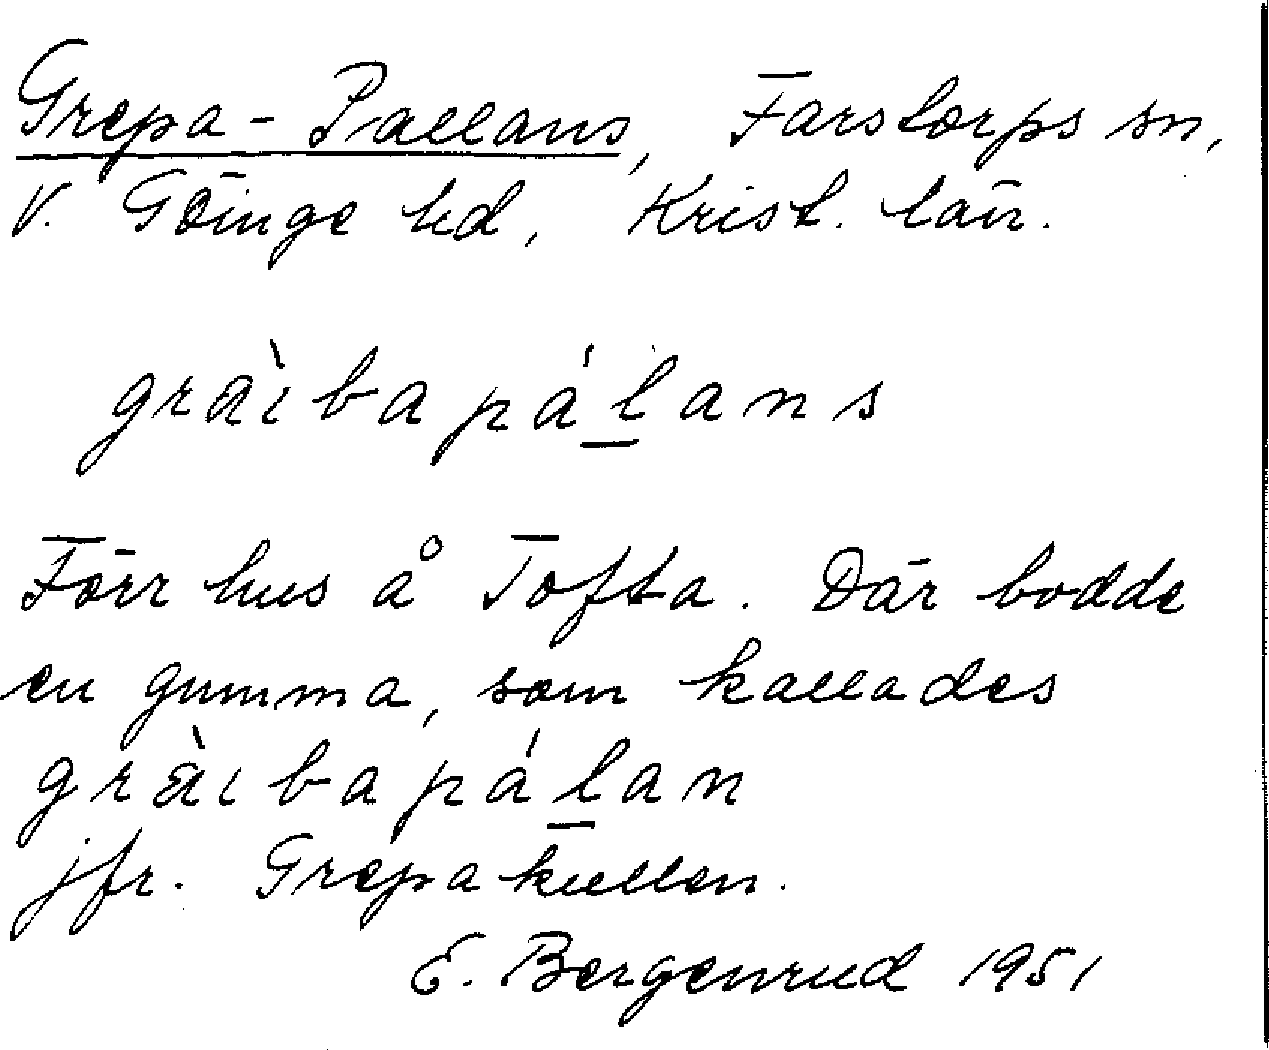 Grepa-Pallans, Farstorps sn,
V. Göinge hd, Krist. län.
gràibapálans
Förr hus å Tofta. Där bodde
en gumma, som kallades
gràibapálan
jfr. Grepakullen.
E. Bergenrud 1951